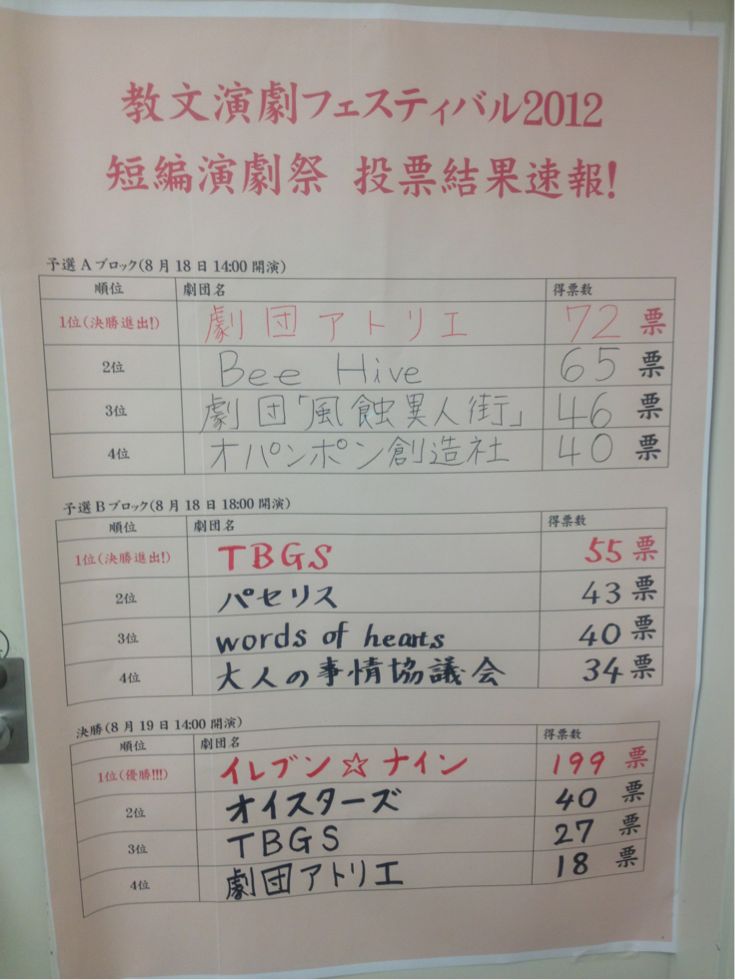 教文演劇フェスティバル2012
短編演劇祭 投票結果速報!
予選Aブロック(8月18日14:00開演)
順位 劇団名 得票数
1位(決勝進出!) 劇団アトリエ 72票
2位 Bee Hive 65票
3位 劇団「風蝕異人街」 46票
4位 オパンポン創造社 40票
予選Bブロック(8月18日18:00開演)
順位 劇団名 得票数
1位(決勝進出!) TBGS 55票
2位 パセリス 43票
3位 words of hearts 40票
4位 大人の事情協議会 34票
決勝(8月19日14:00開演)
順位 劇団名 得票数
1位(優勝!!!) イレブン☆ナイン 199票
2位 オイスターズ 40票
3位 TBGS 27票
4位 劇団アトリエ 18票